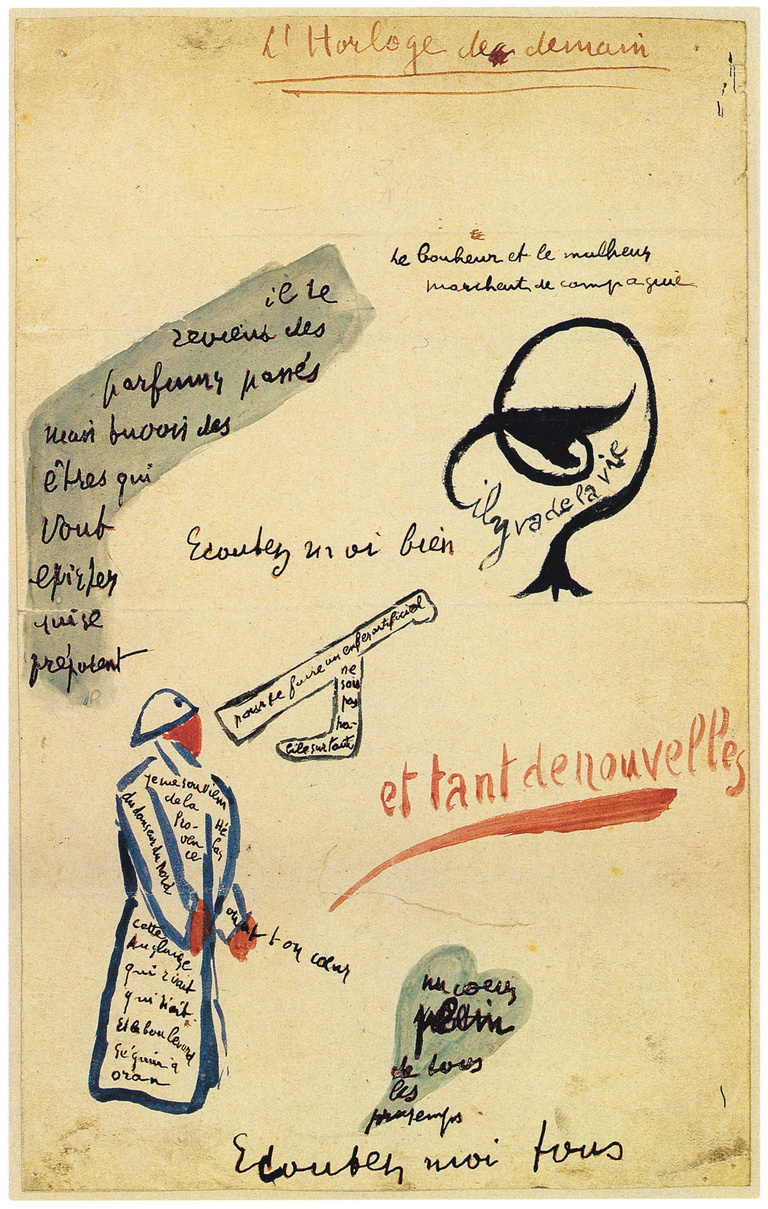 L'Horloge de demain
Le bonheur et le malheur
marchent de compagnie
il te
revient des
parfums passés
mais tu vois des
êtres qui
vont
exister
qui se
préparent
il y va de la vie
Ecoutez moi bien
pour te faire un enfer artificiel
ne
sois
pas
ha-
bile surtout
et tant de nouvelles
je me souviens
de la
Pro-
ven
ce
Hé
las
du danseur du Nord
cette
Anglaise
qui riait
qui riait
Et le boulevard
Séguin à
oran
ouvert ton cœur
un coeur
plein
de tous
les
printemps
Ecoutez moi tous